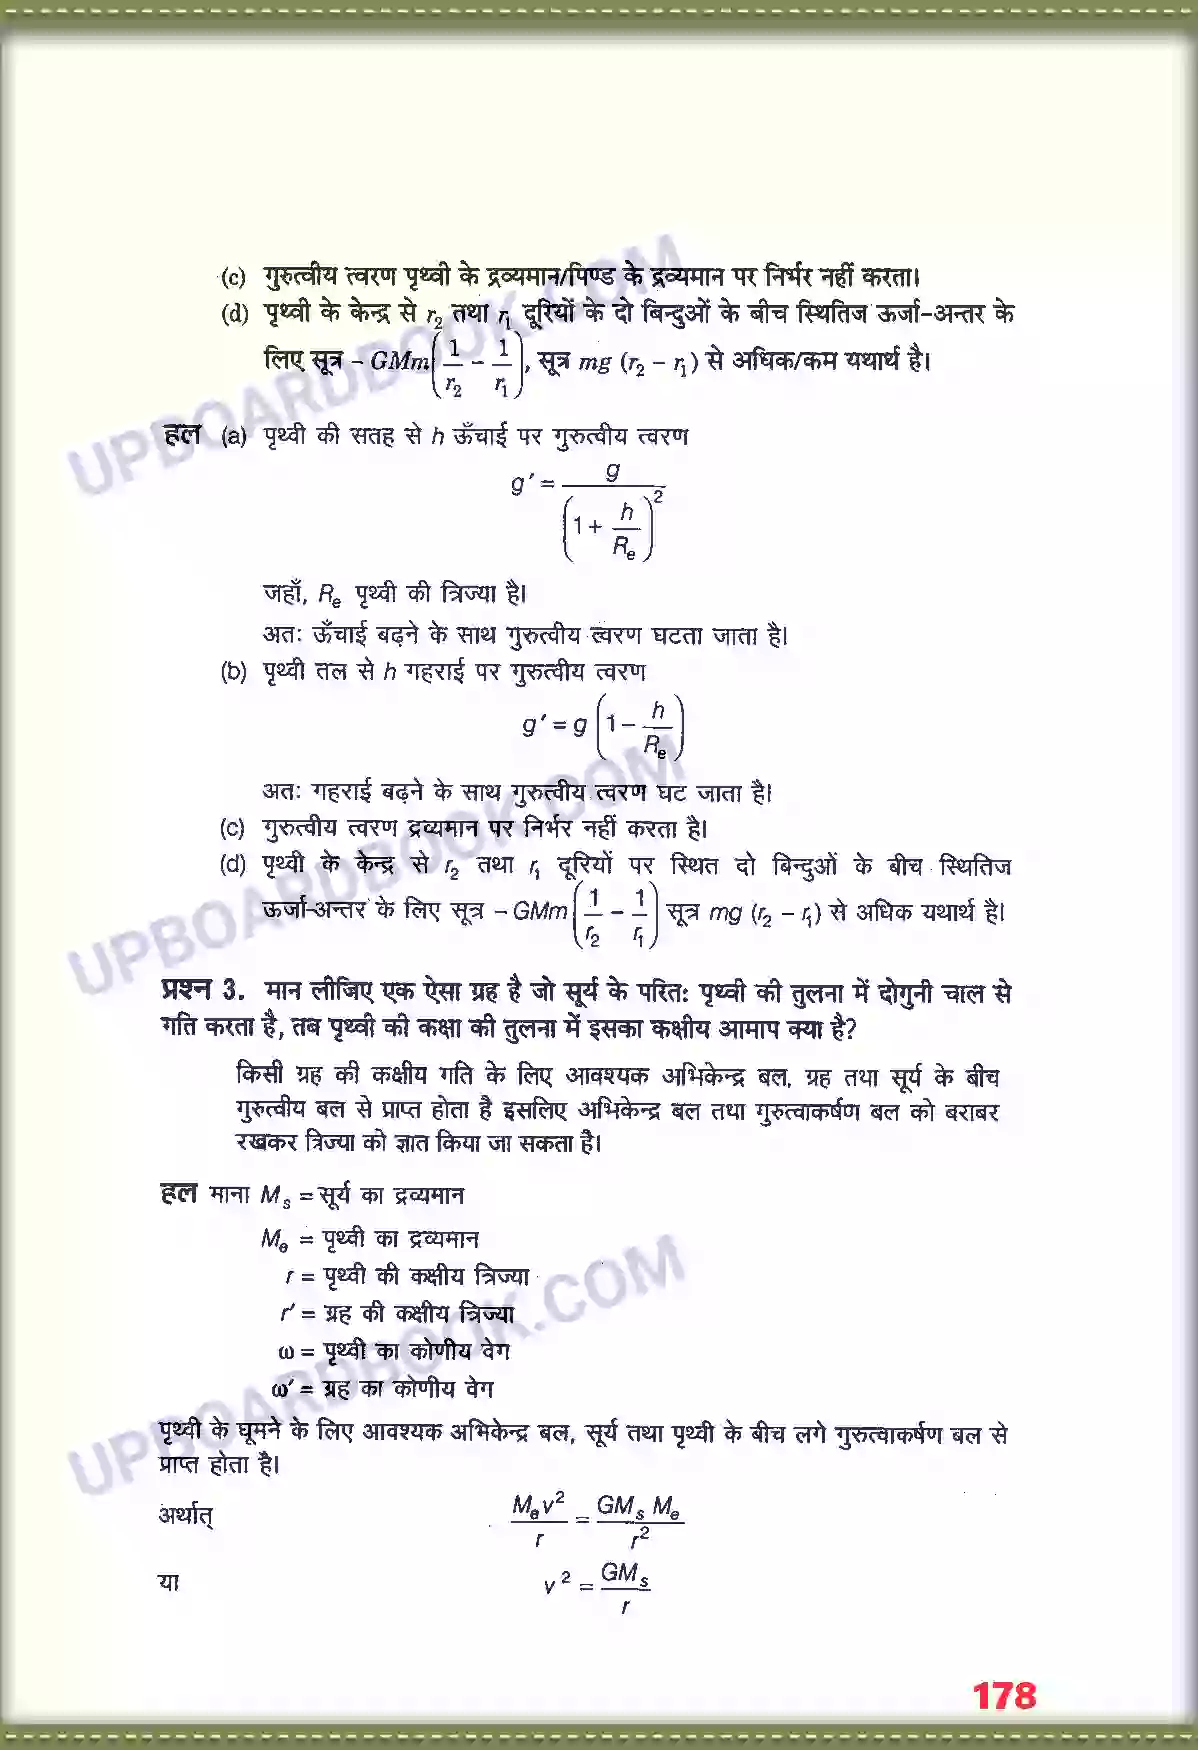 (c) गुरुत्वीय त्वरण पृथ्वी के द्रव्यमान/पिण्ड के द्रव्यमान पर निर्भर नहीं करता।
(d) पृथ्वी के केन्द्र से r₂ तथा r₁ दूरियों के दो बिन्दुओं के बीच स्थितिज ऊर्जा-अन्तर के
लिए सूत्र – GMm(1/r₂ – 1/r₁), सूत्र mg (r₂ – r₁) से अधिक/कम यथार्थ है।
हल (a) पृथ्वी की सतह से h ऊँचाई पर गुरुत्वीय त्वरण
g′ = g/(1 + h/Rₑ)²
जहाँ, Rₑ पृथ्वी की त्रिज्या है।
अतः ऊँचाई बढ़ने के साथ गुरुत्वीय त्वरण घटता जाता है।
(b) पृथ्वी तल से h गहराई पर गुरुत्वीय त्वरण
g′ = g (1 – h/Rₑ)
अतः गहराई बढ़ने के साथ गुरुत्वीय त्वरण घट जाता है।
(c) गुरुत्वीय त्वरण द्रव्यमान पर निर्भर नहीं करता है।
(d) पृथ्वी के केन्द्र से r₂ तथा r₁ दूरियों पर स्थित दो बिन्दुओं के बीच स्थितिज
ऊर्जा-अन्तर के लिए सूत्र – GMm(1/r₂ – 1/r₁) सूत्र mg (r₂ – r₁) से अधिक यथार्थ है।
प्रश्न 3. मान लीजिए एक ऐसा ग्रह है जो सूर्य के परितः पृथ्वी की तुलना में दोगुनी चाल से
गति करता है, तब पृथ्वी की कक्षा की तुलना में इसका कक्षीय आमाप क्या है?
किसी ग्रह की कक्षीय गति के लिए आवश्यक अभिकेन्द्र बल, ग्रह तथा सूर्य के बीच
गुरुत्वीय बल से प्राप्त होता है इसलिए अभिकेन्द्र बल तथा गुरुत्वाकर्षण बल को बराबर
रखकर त्रिज्या को ज्ञात किया जा सकता है।
हल माना Mₛ = सूर्य का द्रव्यमान
Mₑ = पृथ्वी का द्रव्यमान
r = पृथ्वी की कक्षीय त्रिज्या
r′ = ग्रह की कक्षीय त्रिज्या
ω = पृथ्वी का कोणीय वेग
ω′ = ग्रह का कोणीय वेग
पृथ्वी के घूमने के लिए आवश्यक अभिकेन्द्र बल, सूर्य तथा पृथ्वी के बीच लगे गुरुत्वाकर्षण बल से
प्राप्त होता है।
अर्थात् Mₑv²/r = GMₛ Mₑ/r²
या v² = GMₛ/r
178
UPBOARDBOOK.COM
UPBOARDBOOK.COM
UPBOARDBOOK.COM